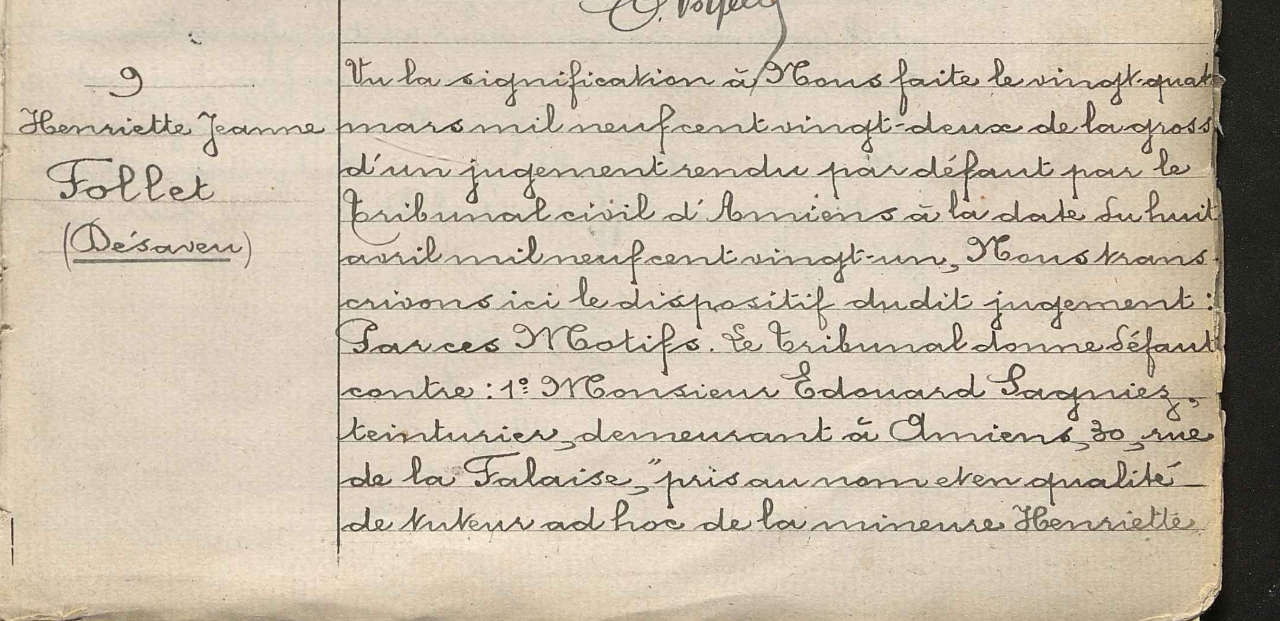 9
Henriette Jeanne
Follet
(Désaveu)
Vu la signification à Nous faite le vingt-quat
mars mil neuf cent vingt-deux de la gross
d'un jugement rendu par défaut par le
Tribunal civil d'Amiens à la date du huit
avril mil neuf cent vingt-un, Nous trans-
crivons ici le dispositif dudit jugement :
Par ces Motifs. Le Tribunal donne défaut
contre : 1º Monsieur Edouard Lagniez,
teinturier, demeurant à Amiens, 30, rue
de la Falaise, "pris au nom et en qualité
de tuteur ad hoc de la mineure Henriette